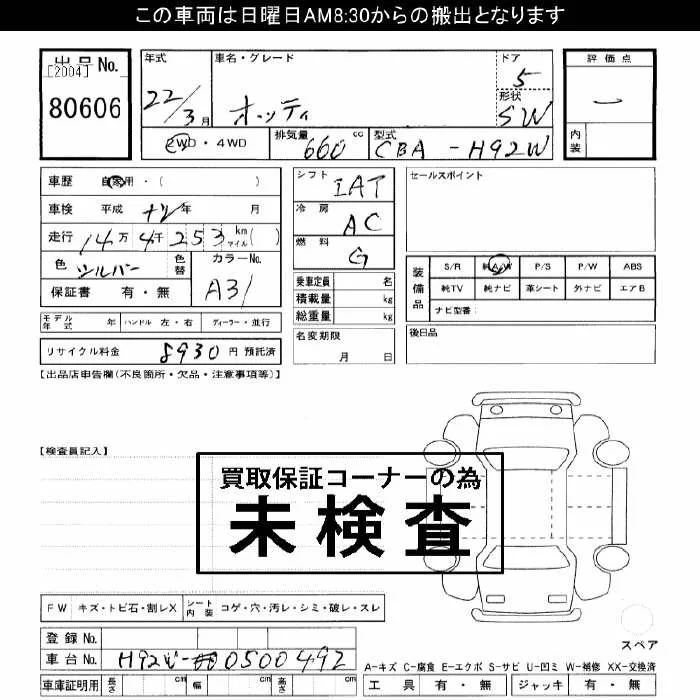 この車両は日曜日AM8:30からの搬出となります
出品No.
[2004]
80606
年式
22/3月
車名・グレード
オッティ
ドア
5
形状
SW
評価点
ー
内装
2WD・4WD
排気量
660 cc
型式
CBA-H92W
車歴 自家用・( )
シフト
IAT
セールスポイント
車検 平成 ナシ年 月
冷房
AC
走行 14万4千253 km マイル( )
燃料
G
色
シルバー
色替
カラーNo.
A31
保証書 有・無
乗車定員 名
積載量 kg
総重量 kg
装備品
S/R 純A/W P/S P/W ABS
純TV 純ナビ 革シート 外ナビ エアB
ナビ型番:
モデル年式 年 ハンドル 左・右 ディーラー・並行
名変期限
月 日
後日品
リサイクル料金 8930円 預託済
【出品店申告欄(不良箇所・欠品・注意事項等)】
【検査員記入】
買取保証コーナーの為
未検査
FW キズ・トビ石・割レX シート内装 コゲ・穴・汚レ・シミ・破レ・スレ
スペア
登録No.
車台No. H92W-0500492
A-キズ C-腐食 E-エクボ S-サビ U-凹ミ W-補修 XX-交換済
車庫証明用 長さ cm 幅 cm 高さ cm
工具 有・無 ジャッキ 有・無